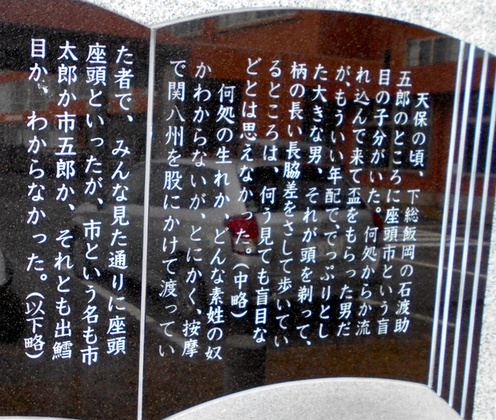 天保の頃、下総飯岡の石渡助
五郎のところに座頭市という盲
目の子分がいた。何処からか流
れ込んで来て盃をもらった男だ
がもういい年配ででっぷりとし
た大きな男、それが頭を剃って、
柄の長い長脇差をさして歩いてい
るところは、何う見ても盲目な
どとは思えなかった。(中略)
何処の生れか、どんな素姓の奴
かわからないが、とにかく、按摩
で関八州を股にかけて渡ってい
た者で、みんな見た通りに座頭
座頭といったが、市という名も市
太郎か市五郎か、それとも出鱈
目か、わからなかった。(以下略)